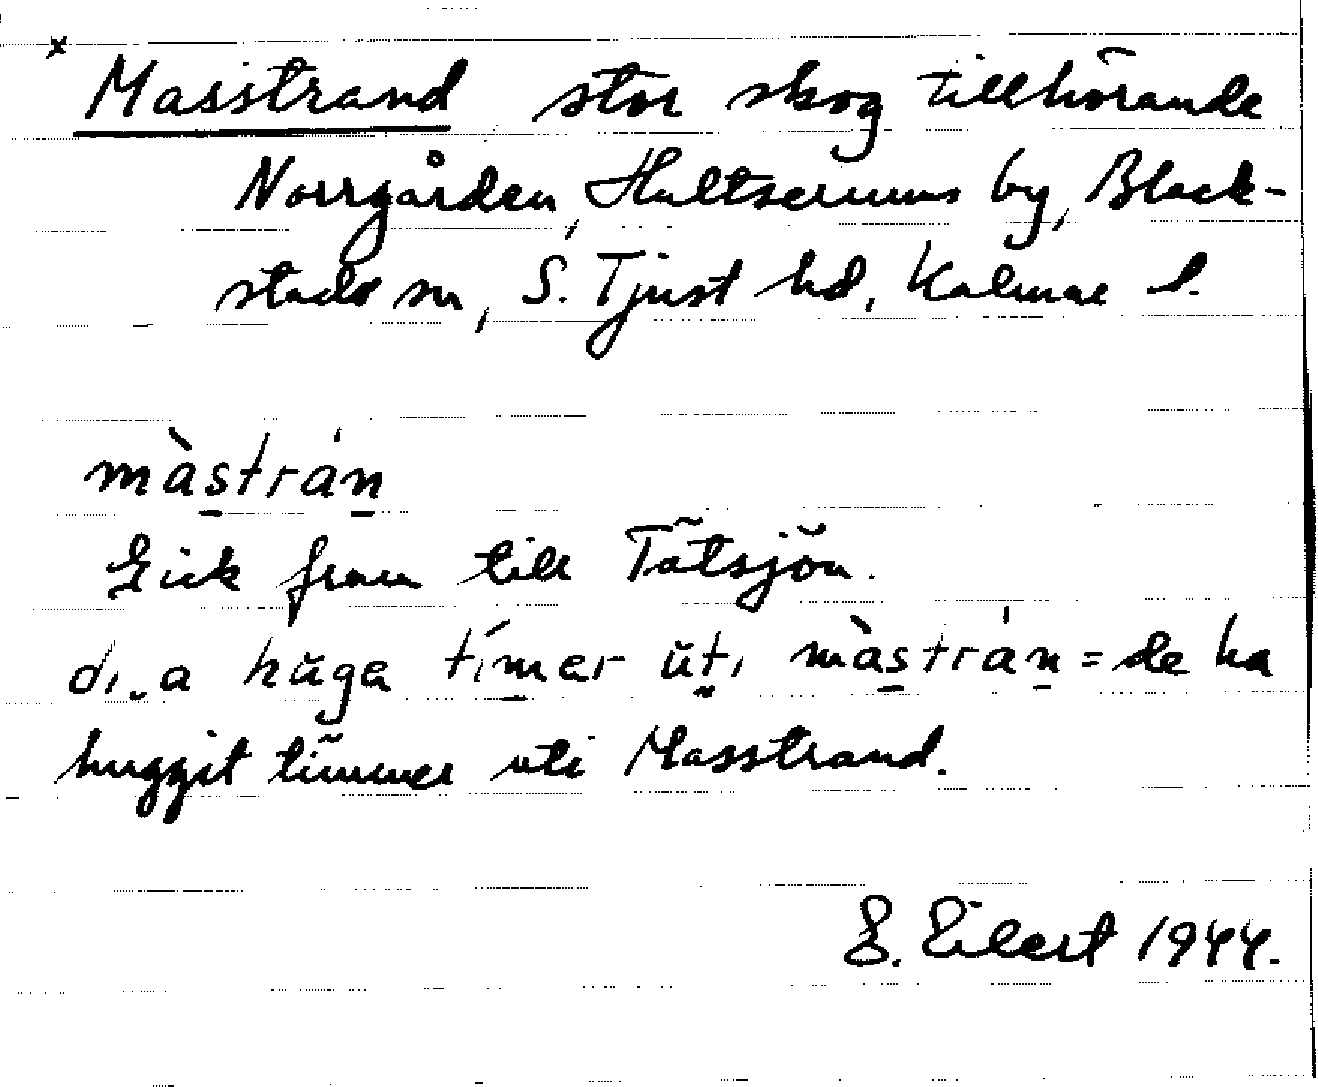 x
Masstrand stor skog tillhörande
Norrgården, Hultserums by, Black-
stads sn, S. Tjust hd, Kalmar l.
màstrá́n
Gick fram till Tätsjön.
di a hŭga tímer ŭti màstrán = de ha
huggit timmer uti Masstrand.
E. Eilert 1944.